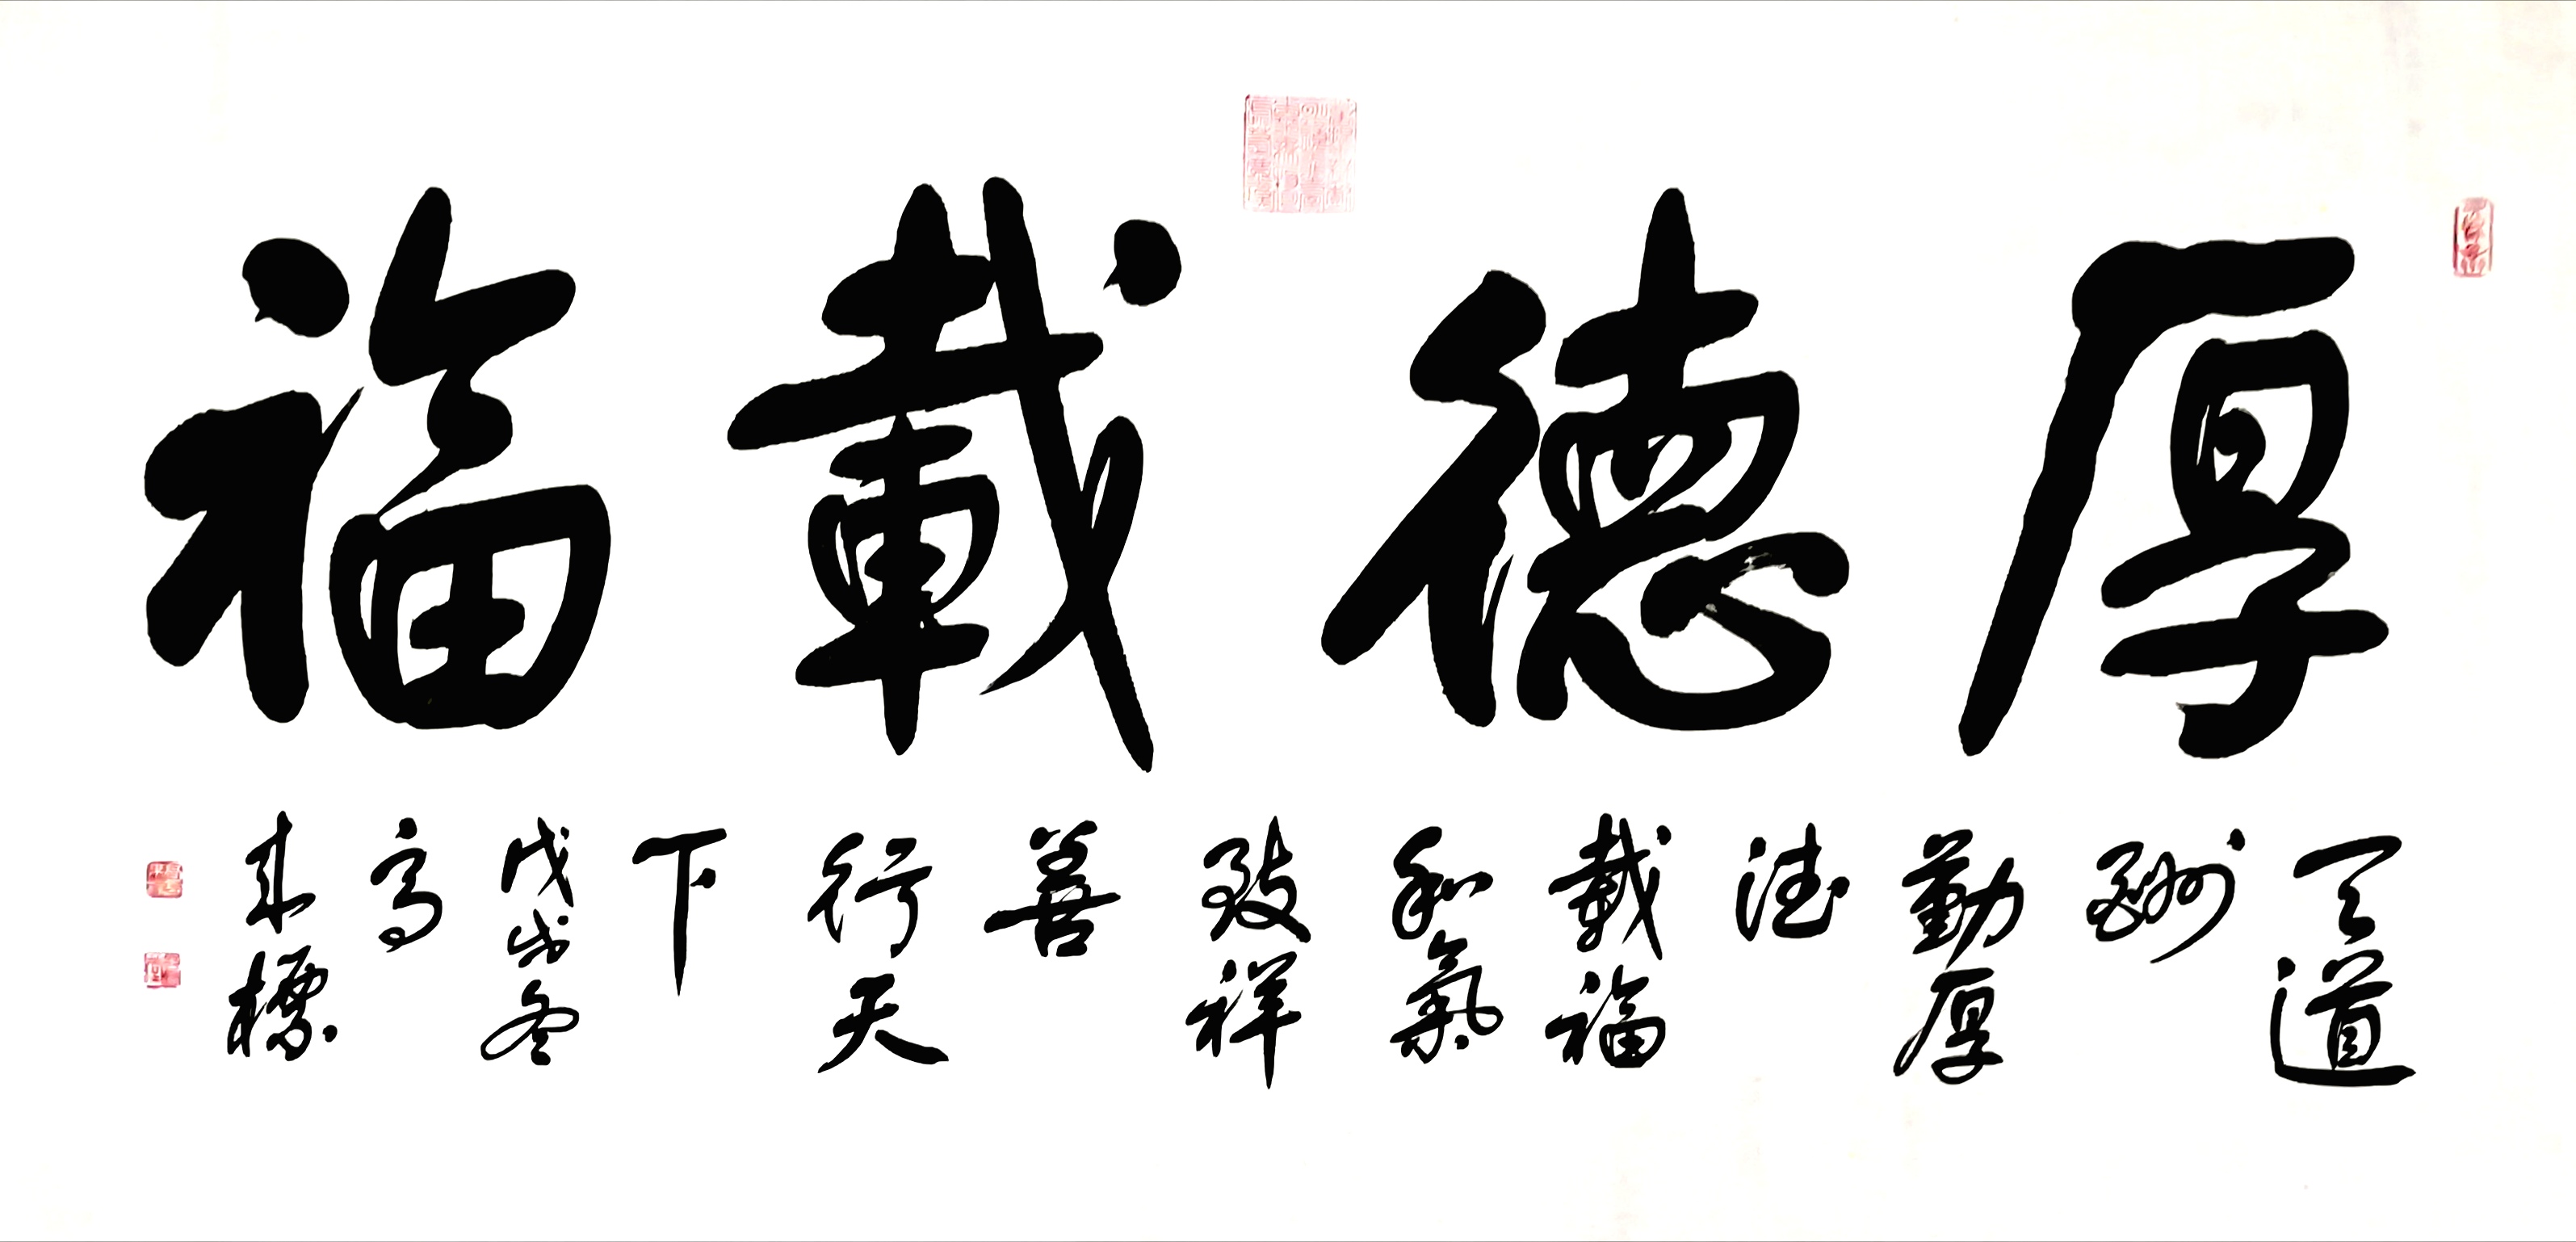 厚德載福
天道
酬
勤厚
德
載福
和氣
致祥
善
行天
下
戊戌冬
高
東標